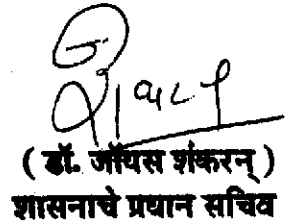 ( डॉ. जॉयस शंकरन् )
शासनाचे प्रधान सचिव